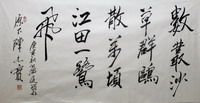 數叢沙
草群鷗
散萬頃
江田一鷺
飛